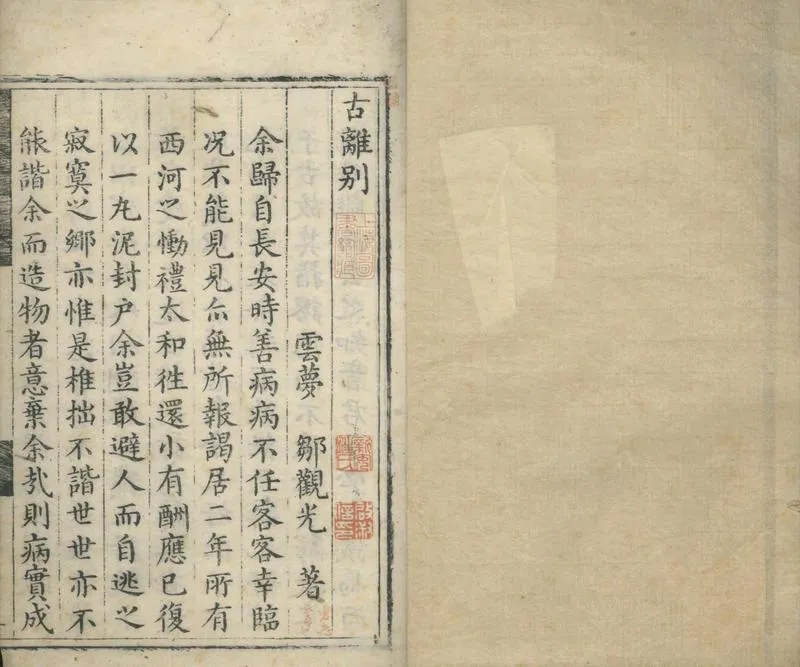 古離別
雲夢 鄒觀光 著
余歸自長安時善病病不任客客幸臨
况不能見見亦無所報謁居二年所有
西河之慟禮太和徃還小有酬應已復
以一丸泥封户余豈敢避人而自逃之
寂寞之鄉亦惟是椎拙不諧世世亦不
能諧余而造物者意棄余㢤則病實成